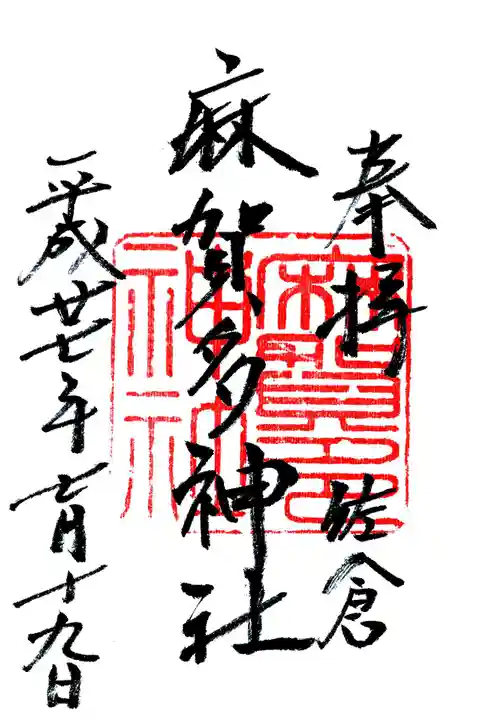 奉拝 佐倉
麻賀多神社
平成廿七年七月十九日
麻賀多
神社